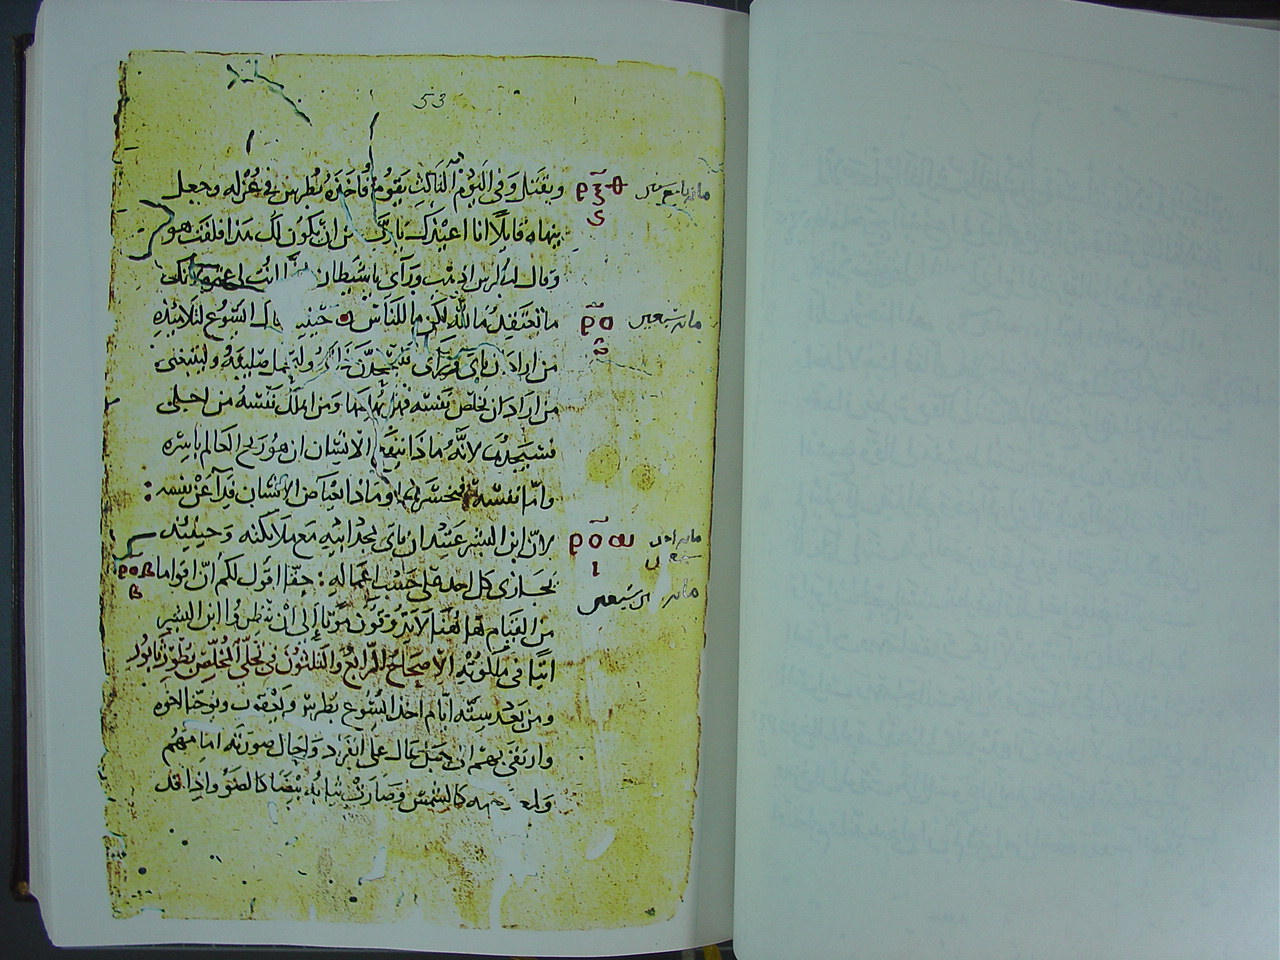 53
ويقتل وفي اليوم الثالث يقوم فاخذه بطرس في عزله وجعل
ينهاه قايلا انا اعيذك يا رب من ان يكون لك هذا فلفت هو
وقال لبطرس اذهب ورآي يا شيطان انت لي عثره لانك
ما تعتقد ما لله لكن ما للناس حينيد قال ايسوع لتلاميذه
من اراد ان ياتي ورآي فليجحد ذاته وليحمل صليبه وليتبعني
من اراد ان يخلص نفسه فليهلكها ومن اهلك نفسه من اجلي
فسيجدها لانه ماذا ينفع الانسان ان هو ربح العالم باسره
وامّا نفسه فيخسرها وماذا يعطي الانسان فدآ عن نفسه :
لانّ ابن البشر عتيد ان ياتي بمجد ابيه مع ملائكته وحينيذ
يجازي كل احد على حسب اعماله : حقا اقول لكم انّ اقواما
من القيام هاهنا لا يذوقون موتا إلى أن ينظروا ابن البشر
اتيا في ملكوته الاصحاح الرابع والثلثون في تجلي المخلص بطور تابور
ومن بعد ستة ايام اخذ ايسوع بطرس ويعقوب ويوحنا اخوه
وارتقى بهم الى جبل عال على انفراد واحال صورته امامهم
ولمع وجهه كالشمس وصارت ثيابه بيضا كالضو واذا قد
ماية سبعين